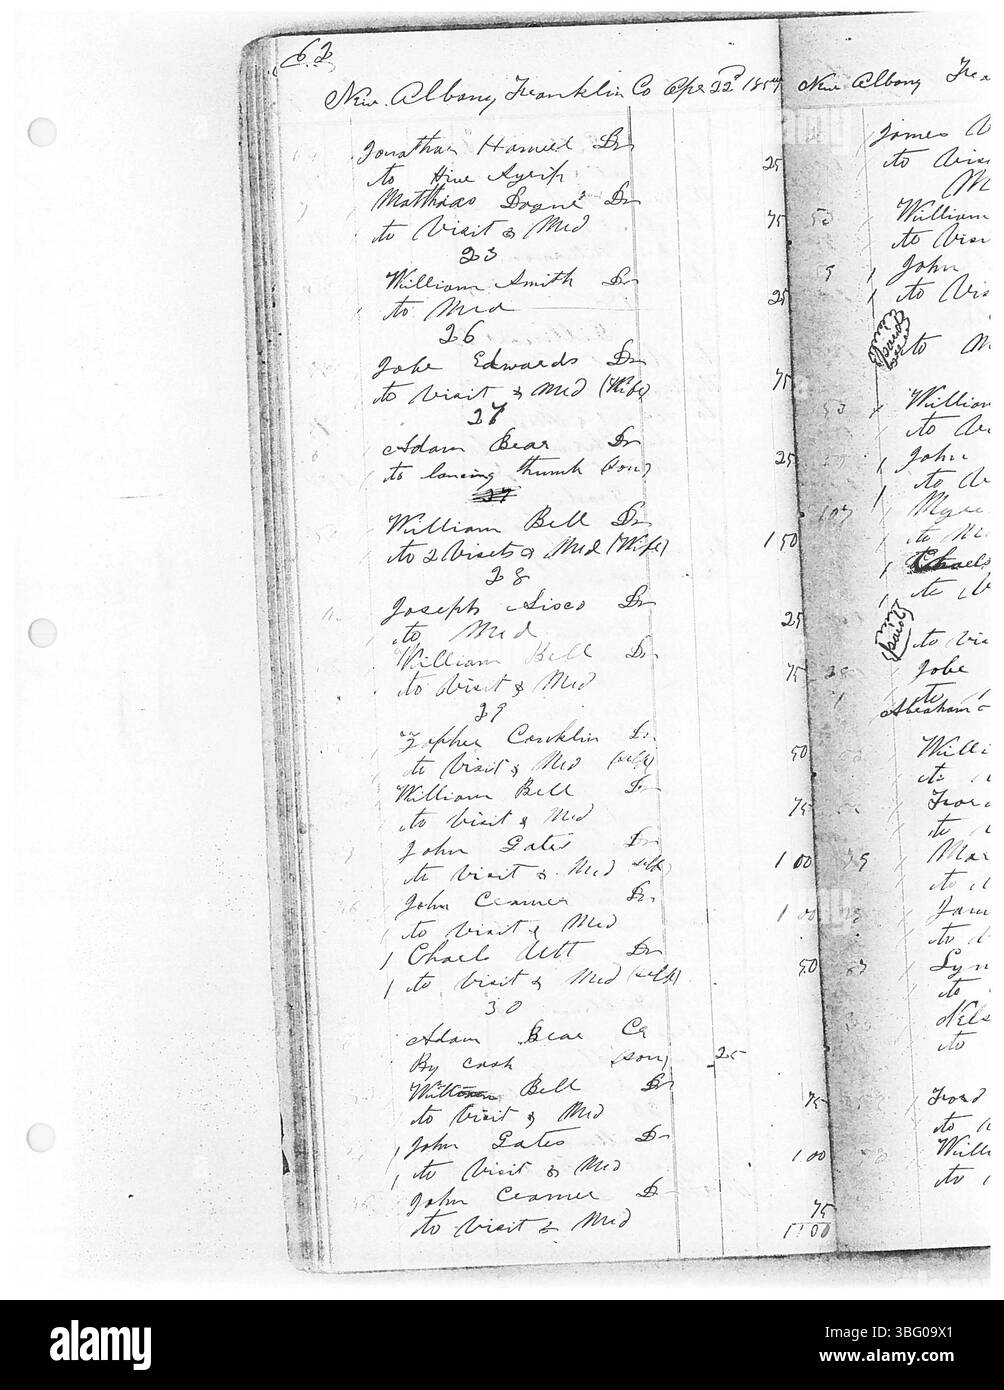 62
New Albany Franklin Co Apr 22d 1854
Jonathan Harned Dr
to Hive Syrip 25
Matthias Doane Dr
to Visit & Med 75
23
William Smith Dr
to Med 25
26
John Edwards Dr
to Visit & Med (Wife) 75
27
Adam Bear Dr
to lancing thumb (son) 25
William Bell Dr
to 2 Visits & Med (Wife) 1 50
28
Joseph Sisco Dr
to Med 25
William Bell Dr
to Visit & Med 75
29
Zopher Conklin Dr
to Visit & Med (self) 50
William Bell Dr
to Visit & Med 75
John Gates Dr
to Visit & Med self) 1 00
John Cramer Dr
to Visit & Med 1 00
Charls Utt Dr
to Visit & Med (self) 50
30
Adam Bear Cr
By cash (son) 25
Bell Dr
to Visit & Med 75
John Gates Dr
to Visit & Med 1 00
John Cramer Dr
to Visit & Med 75
11 00
New Albany
James
to Visi
William
to Visi
John
to Vis
paid
to M
William
to
John
to
to
Charls
to
paid
to Vis
Jobe
to
Abraham
Willi
to
Ford
to
Mar
to
Jam
to
Lyn
to
Nels
to
Ford
to
Willi
to
alamy
a
alamy stock photo
Image ID: 3BG09X1
www.alamy.com